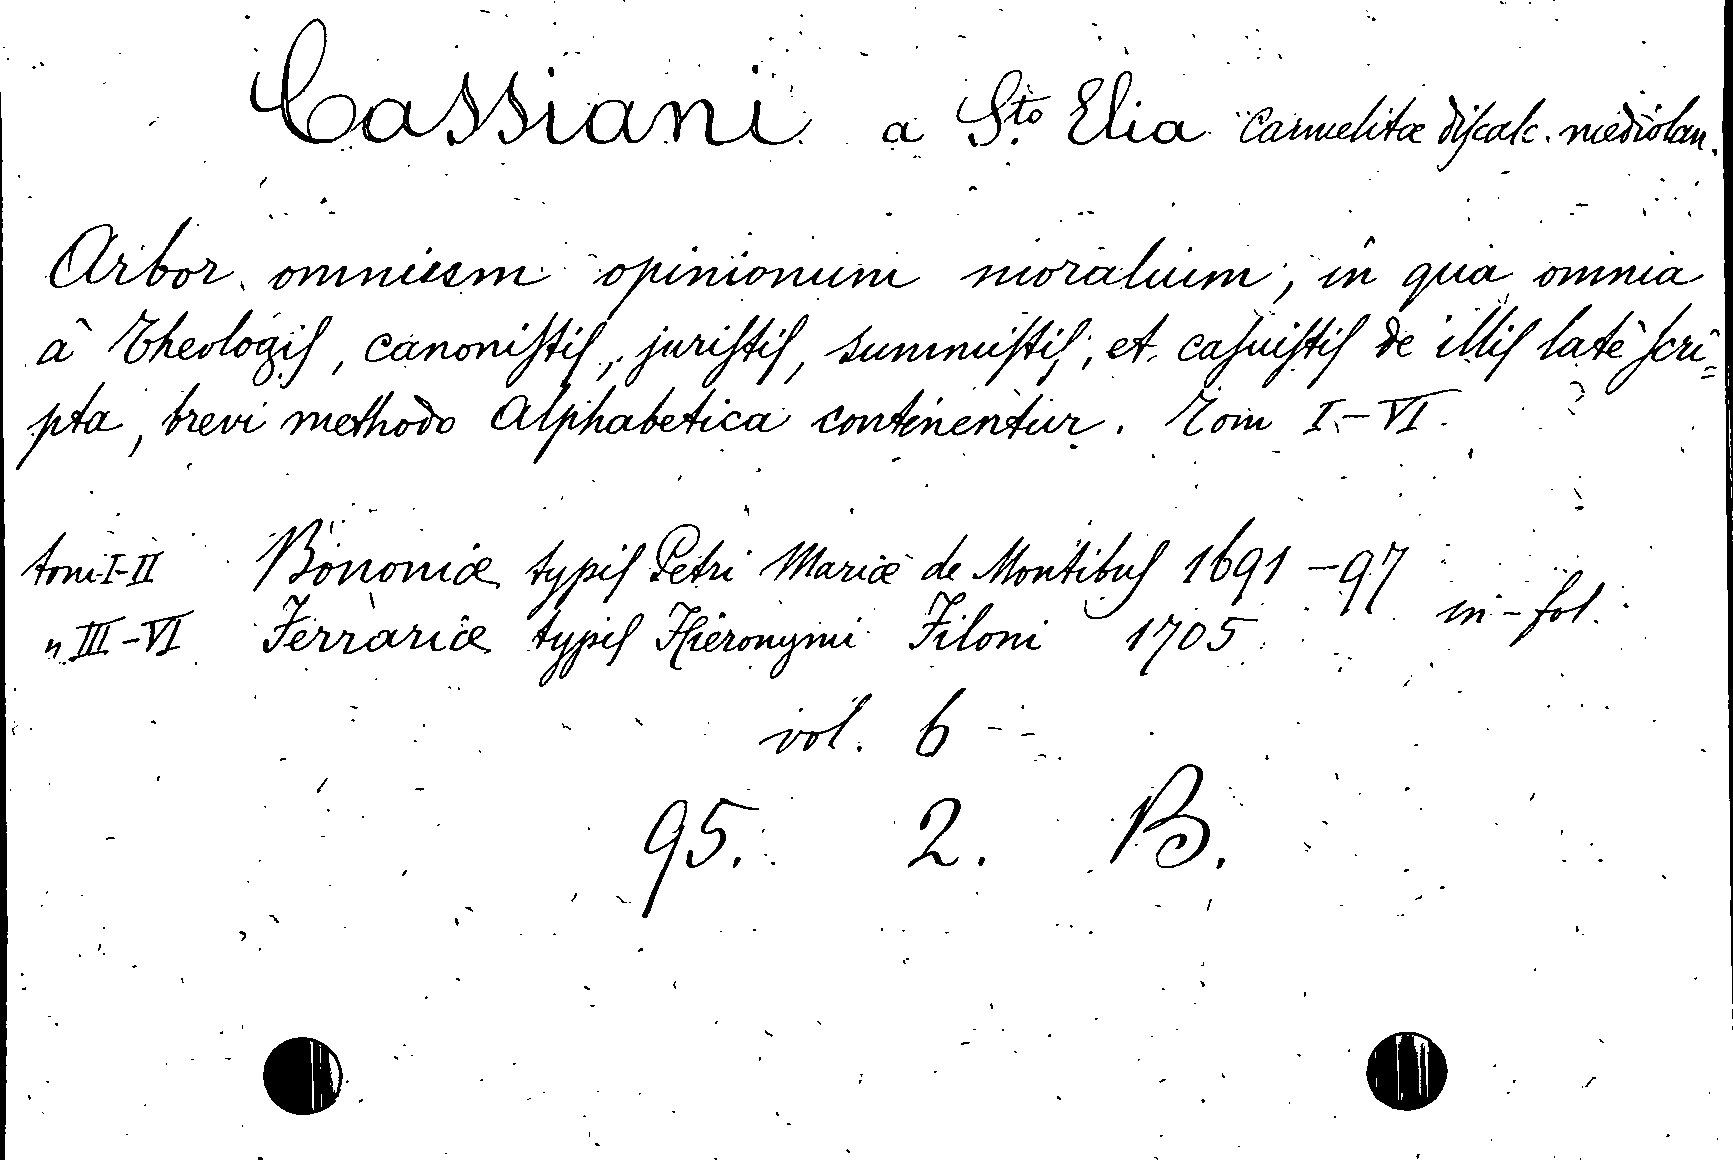 Cassiani a Sto Elia Carmelitæ discalc. mediolan.
Arbor omnium opinionum moralium, in qua omnia
à Theologis, canonistis, juristis, summistis, et casuistis de illis latè scri=
pta, brevi methodo Alphabetica continentur. Tom I–VI.
tom I–II Bononiæ typis Petri Mariæ de Montibus 1691–97
„ III–VI Ferrariæ typis Hieronymi Filoni 1705 in-fol.
vol. 6
95. 2. B.